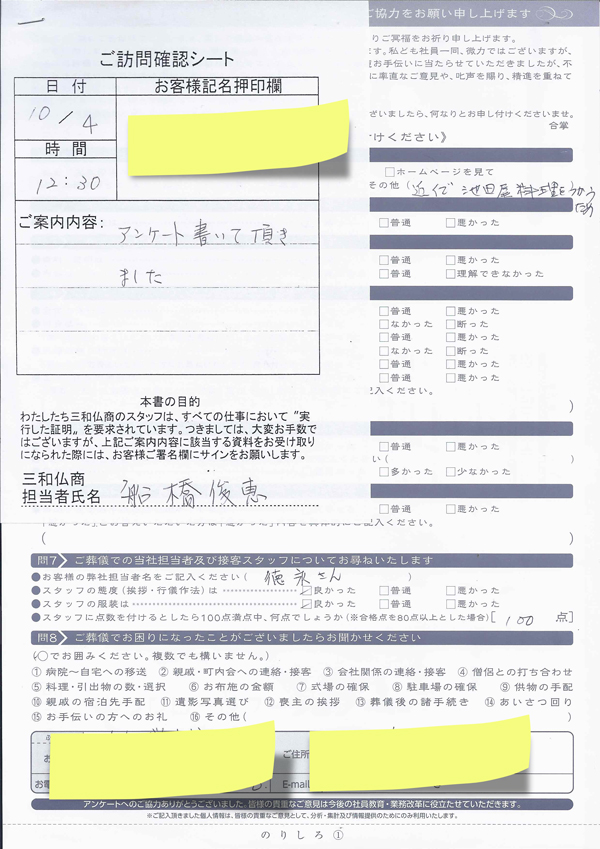 ご協力をお願い申し上げます
りご冥福をお祈り申します。
す。私ども社員一同、微力ではございますが、
お手伝いに当たらせていただきましたが、不
に率直なご意見や、叱声を賜り、精進を重ねて
ざいましたら、何なりとお申し付けくださいませ。
合掌
けください》
ご訪問確認シート
日付
お客様記名押印欄
10/4
時間
12:30
ご案内内容:
アンケート書いて頂き
ました
本書の目的
わたしたち三和仏商のスタッフは、すべての仕事において"実
行した証明"を要求されています。つきましては、大変お手数で
はございますが、上記ご案内内容に該当する資料をお受け取り
になられた際には、お客様ご署名欄にサインをお願いします。
三和仏商
担当者氏名 船橋俊恵
□ホームページを見て
その他(近くで 池田屋料理
□普通 □悪かった
□普通 □悪かった
□普通 □理解できなかった
□普通 □悪かった
□なかった □断った
□普通 □悪かった
□なかった □断った
□普通 □悪かった
□普通 □悪かった
記入ください。
)
□普通 □悪かった
い(
□多かった □少なかった
□普通 □悪かった
( )
問7 ご葬儀での当社担当者及び接客スタッフについてお尋ねいたします
●お客様の弊社担当者名をご記入ください( 徳永さん )
●スタッフの態度(挨拶・行儀作法)は ☑良かった □普通 □悪かった
●スタッフの服装は ☑良かった □普通 □悪かった
●スタッフに点数を付けるとしたら100点満点中、何点でしょうか(※合格点を80点以上とした場合)[ 100 点]
問8 ご葬儀でお困りになったことがございましたらお聞かせください
(○でお囲みください。複数でも構いません。)
①病院〜自宅への移送 ②親戚・町内会への連絡・接客 ③会社関係の連絡・接客 ④僧侶との打ち合わせ
⑤料理・引出物の数・選択 ⑥お布施の金額 ⑦式場の確保 ⑧駐車場の確保 ⑨供物の手配
⑩親戚の宿泊先手配 ⑪遺影写真選び ⑫喪主の挨拶 ⑬葬儀後の諸手続き ⑭あいさつ回り
⑮お手伝いの方へのお礼 ⑯その他( )
ご住所
お電
E-mail
アンケートへのご協力ありがとうございました。皆様の貴重なご意見は今後の社員教育・業務改革に役立たせていただきます。
※ご記入頂きました個人情報は、皆様の貴重なご意見として、分析・集計及び情報提供のためにのみ利用いたします。
のりしろ①